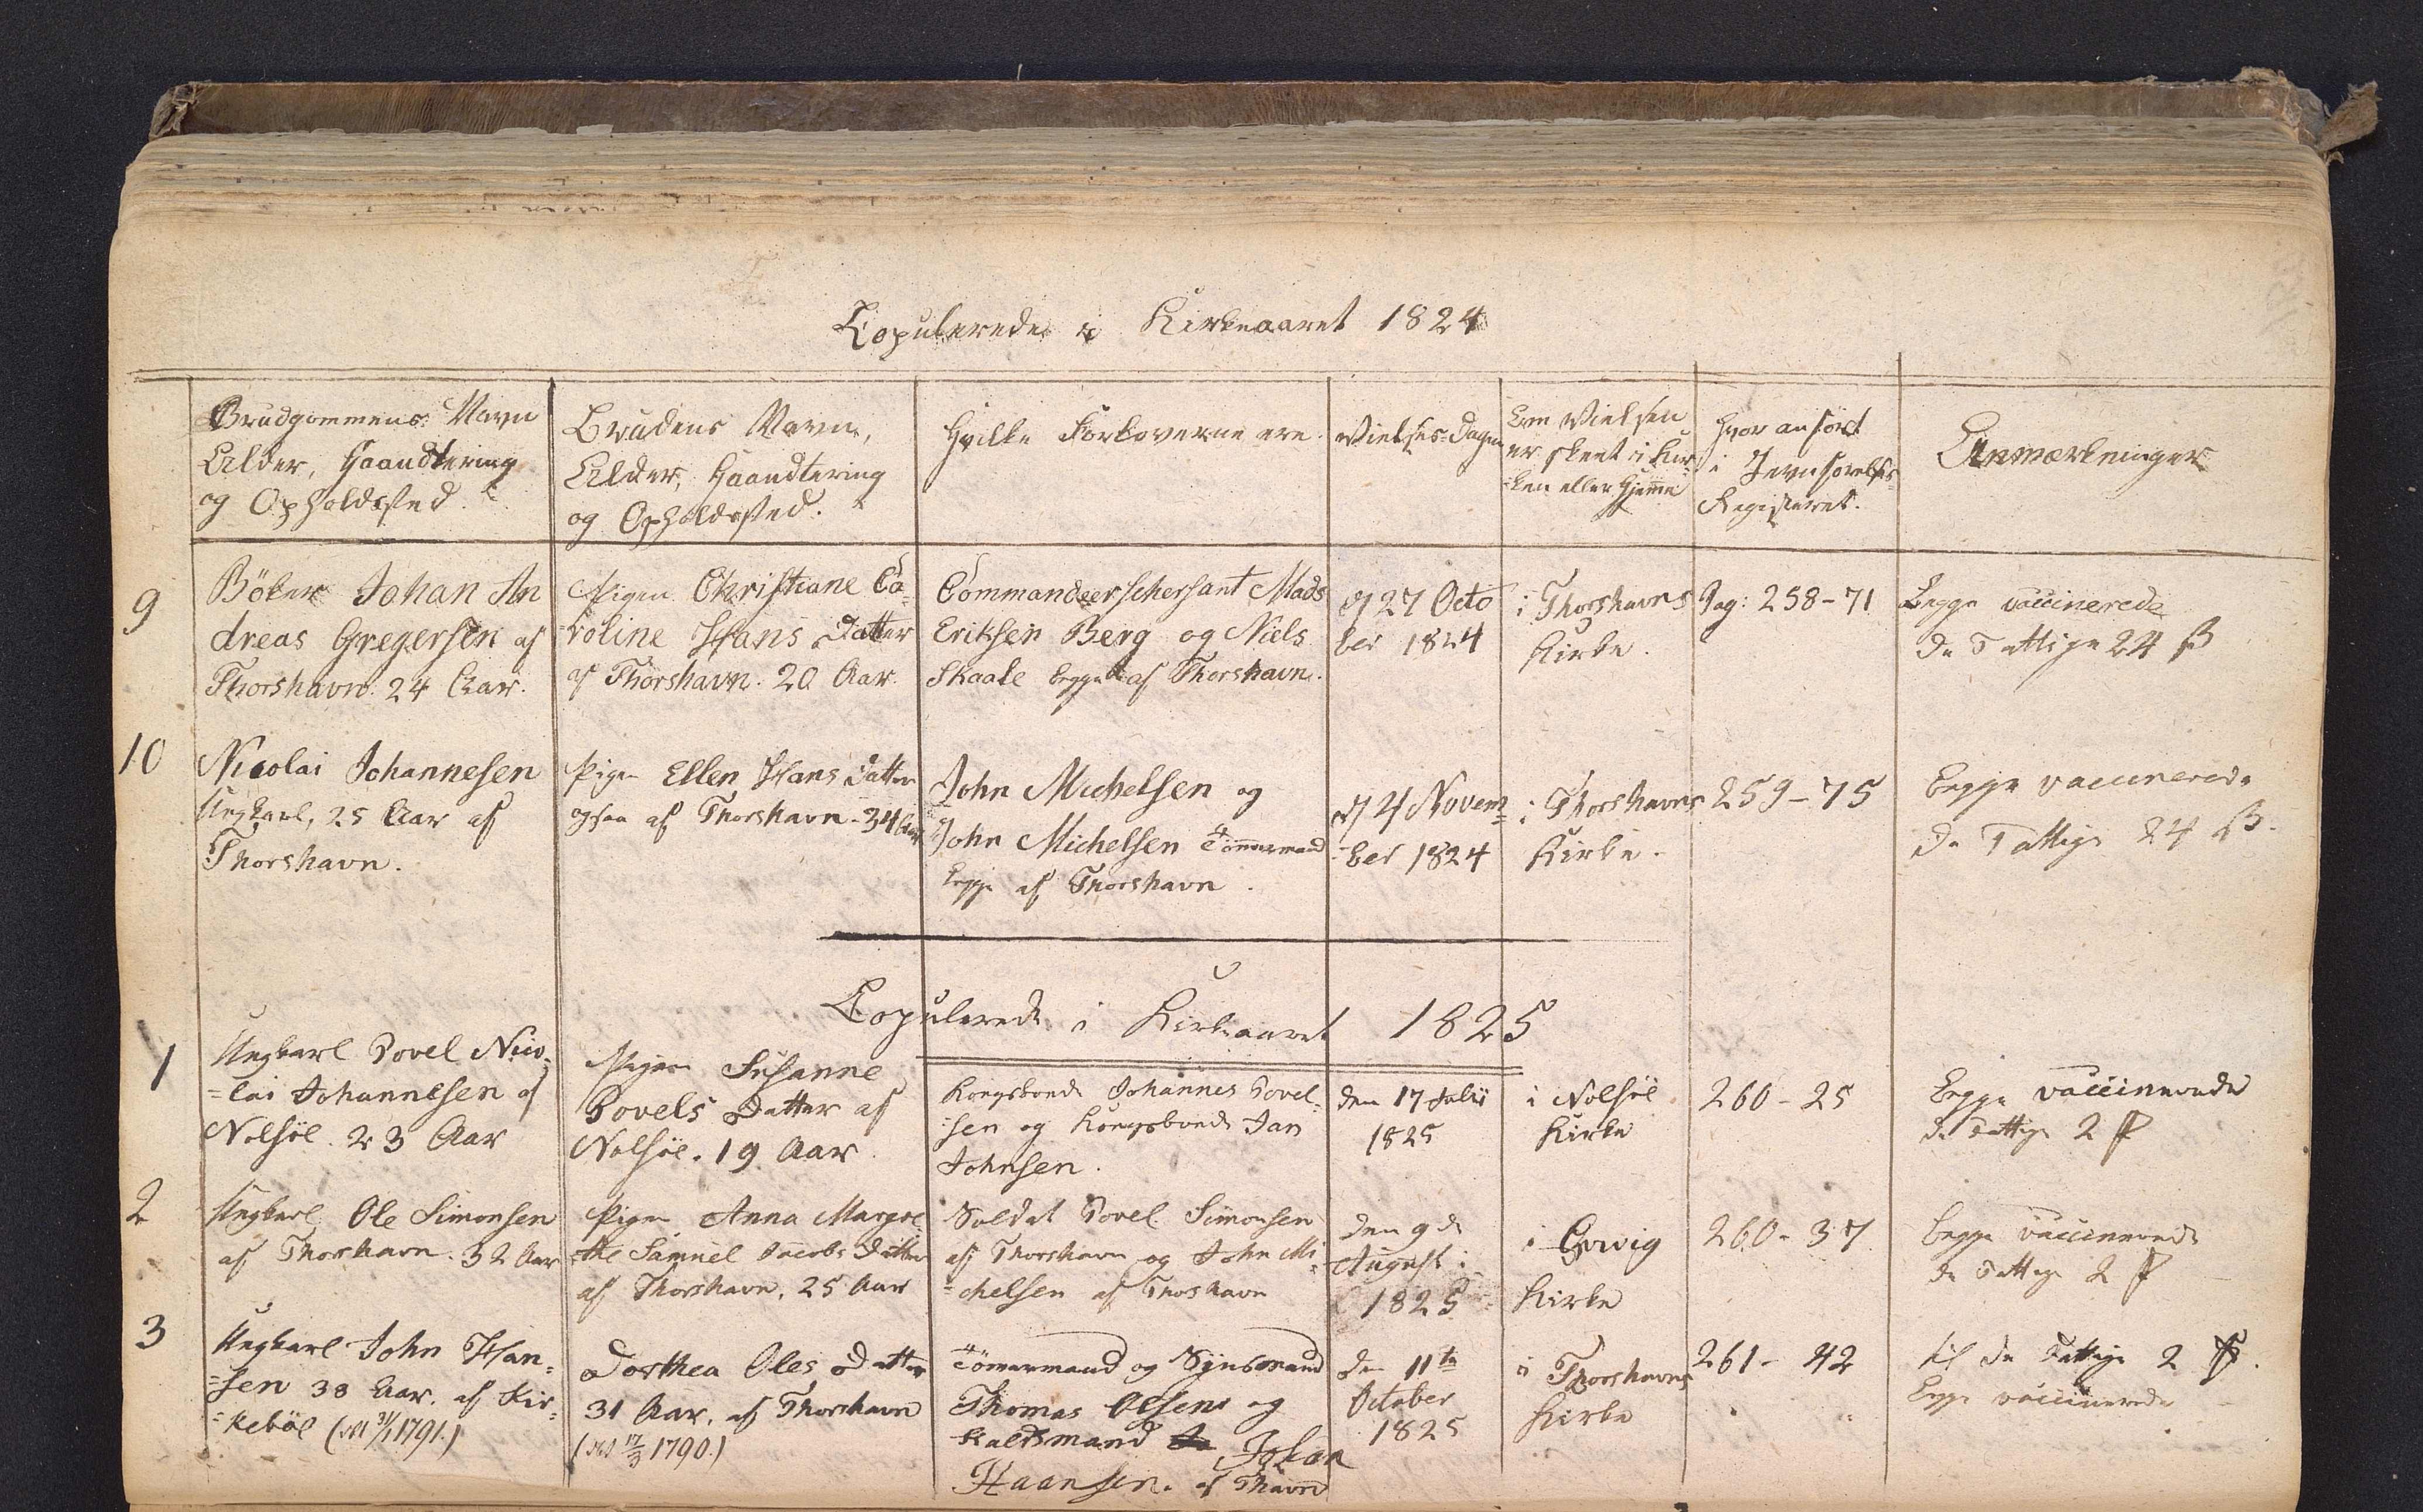 Copulerede i Kirkeaaret 1824
Brudgommens Navn
Alder, Haandtering
og Opholdssted.
Brudens Navn,
Alder, Haandtering
og Opholdssted.
Hvilke Forloverne ere.
Vielses-Dagen
Om Vielsen
er skeet i Kir-
=ken eller Hjemme
Hvor anført
i Jevnførelses-
Registeret.
Anmærkninger
9
Böker Johan An
dreas Gregersen af
Thorshavn. 24 Aar.
Pigen Christiane Ca-
=roline Hans Datter
af Thorshavn. 20 Aar
Commandeerschersant Mads
Eriksen Berg og Niels
Skaale begge af Thorshavn.
27 Octo
ber 1824
i Thorshavns
Kirke.
Pag: 258-71
Begge vaccinerede
De Fattige 24 ß
10
Nicolai Johannesen
Ungkarl, 25 Aar af
Thorshavn.
Pigen Ellen Hans Datter
ogsaa af Thorshavn - 34 Aar
John Michelsen og
John Michelsen Tömmermand
begge af Thorshavn.
4 Novem=
=ber 1824
i Thorshavns
Kirke.
259-75
Begge vaccinerede
De Fattige 24 ß.
Copulerede i Kirkeaaret 1825
1
Ungkarl Povel Nico=
=lai Johannesen af
Nolsöe. 23 Aar
Pigen Susanne
Povels Datter af
Nolsöe. 19 Aar.
Kongsbonde Johannes Povel=
=sen og Kongsbonde Jan
Johnsen.
den 17 Julii
1825
i Nolsöe
Kirke
260-25
Begge vaccinerede
de Fattige 2
2
Ungkarl Ole Simonsen
af Thorshavn. 32 Aar
Pigen Anna Margre
=the Samuel Jacobs Datter
af Thorshavn, 25 Aar
Soldat Povel Simonsen
af Thorshavn og John Mi=
=chelsen af Thorshavn
den 9de
August
1825
i
Kirke
260-37
begge vaccinerede
de Fattige 2
3
Ungkarl John Han=
=sen 38 Aar. af Kir=
=keböe ( 31/1 1791.)
Dorthea Oles Datter
31 Aar. af Thorshavn
( 17/3 1790.)
Tömermand og Synsmand
Thomas Olsen og
Kaldsmand Johan
Haansen. af Thavn
den 11te
October
1825
i Thorshavns
Kirke
261-42
til de Fattige 2
begge vaccinerede